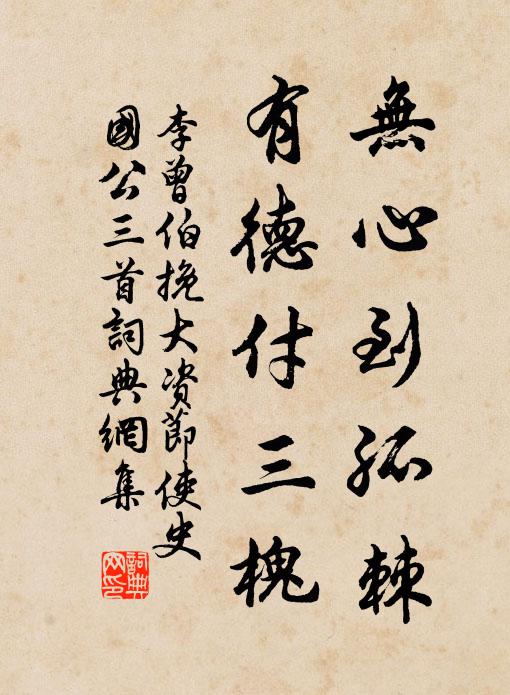 無心到孤棘
有德付三槐
李曾伯挽大資節使史
國公三首詞典網集
詞典网印